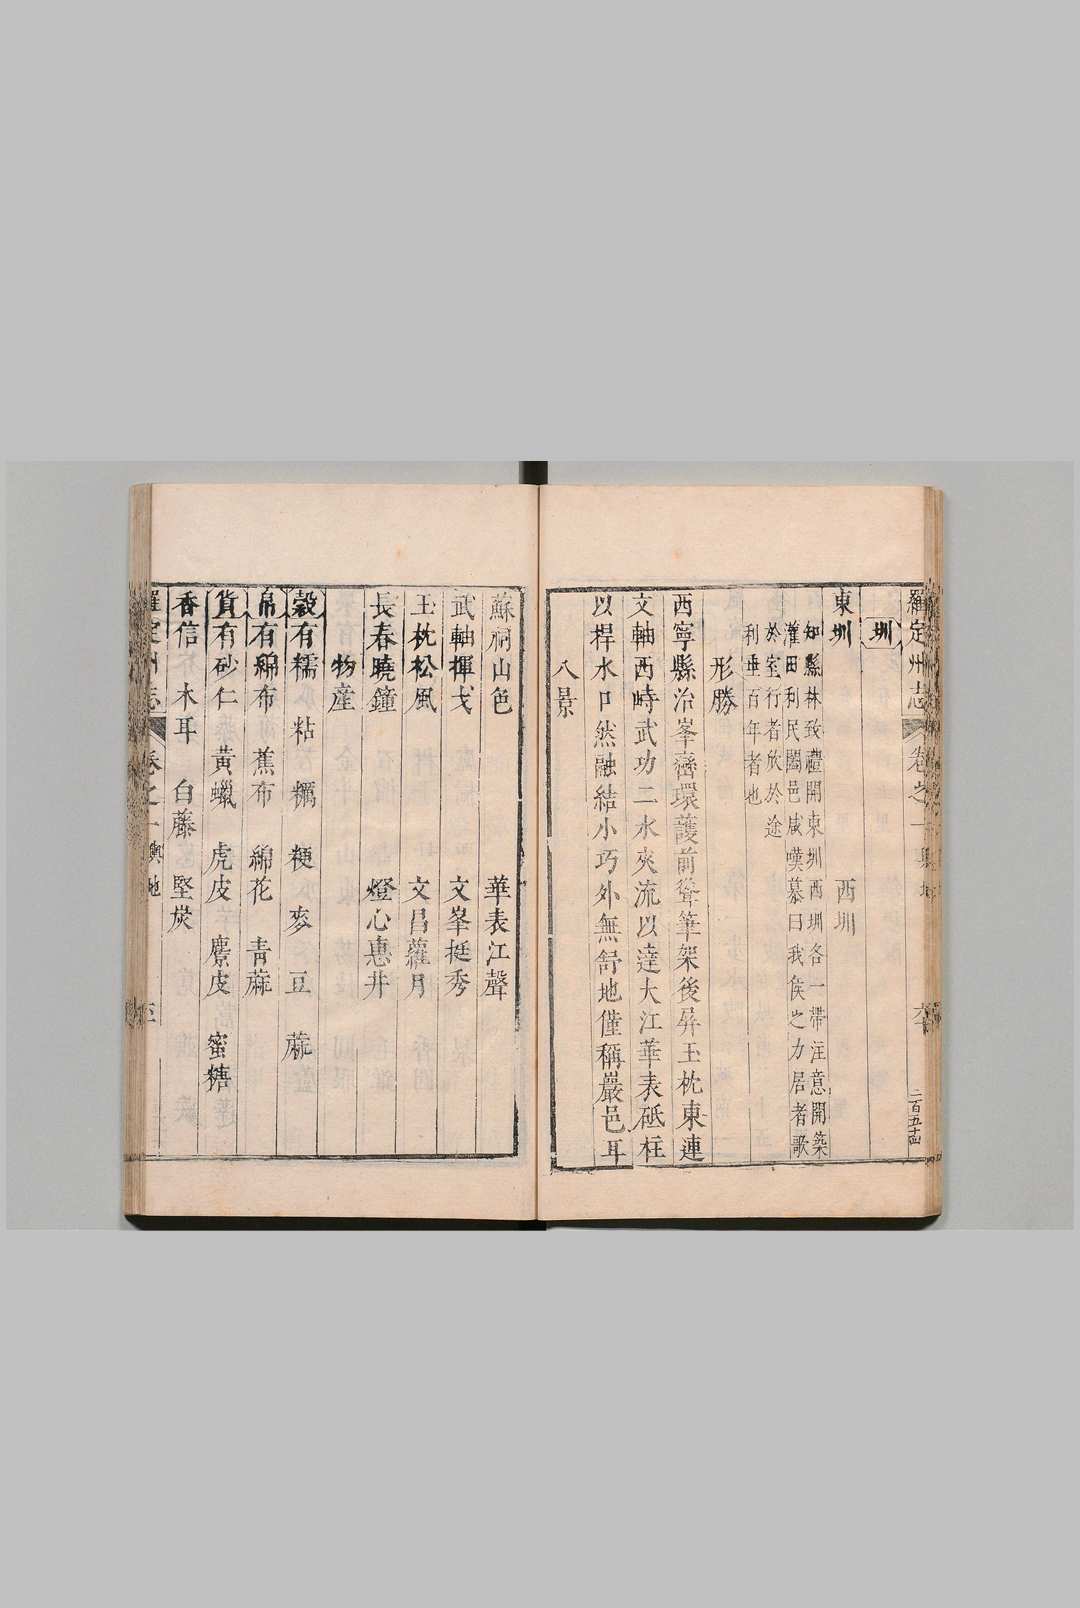 羅定州志 卷之一 輿地 六 二百五十四
圳
東圳 西圳
知縣林致禮開東圳西圳各一帶注意開築
灌田利民闔邑咸嘆慕曰我侯之力居者歌
於室行者欣於途
利垂百年者也
形勝
西寧縣治峯巒環護前聳筆架後屏玉枕東連
文軸西峙武功二水夾流以達大江華表砥柱
以捍水口然融結小巧外無舒地僅稱嚴邑耳
八景
蘇祠山色 華表江聲
武軸揮戈 文峯挺秀
玉枕松風 文昌蘿月
長春曉鐘 燈心惠井
物產
穀有糯 粘 糲 粳 麥 豆 蔴
帛有綿布 蕉布 綿花 青蔴
貨有砂仁 黃蠟 虎皮 麖皮 蜜糖
香信 木耳 白藤 堅炭
羅定州志 卷之一 輿地